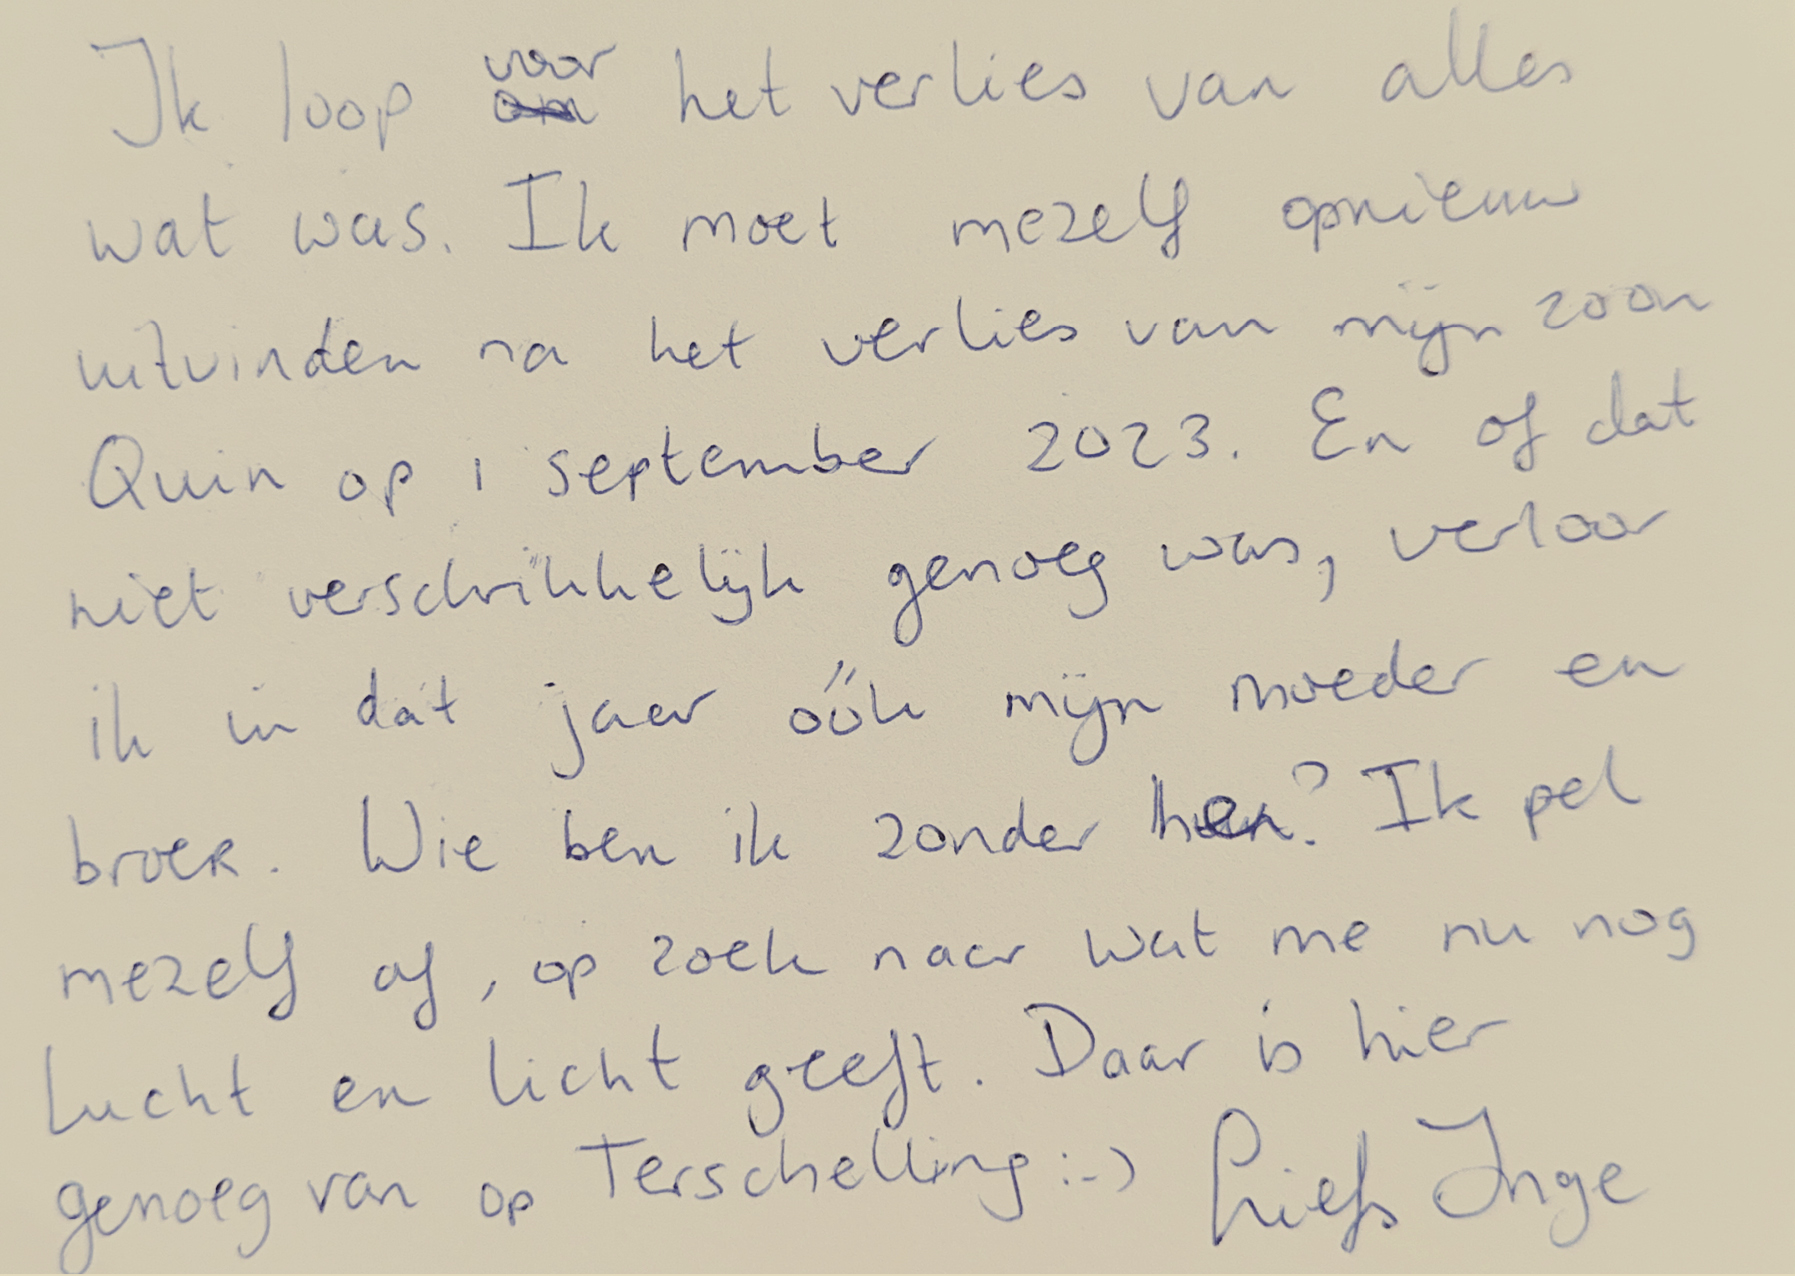 Ik loop voor het verlies van alles
wat was. Ik moet mezelf opnieuw
uitvinden na het verlies van mijn zoon
Quin op 1 september 2023. En of dat
niet verschrikkelijk genoeg was, verloor
ik in dat jaar óók mijn moeder en
broer. Wie ben ik zonder hen? Ik pel
mezelf af, op zoek naar wat me nu nog
lucht en licht geeft. Daar is hier
genoeg van op Terschelling :-) Liefs Inge